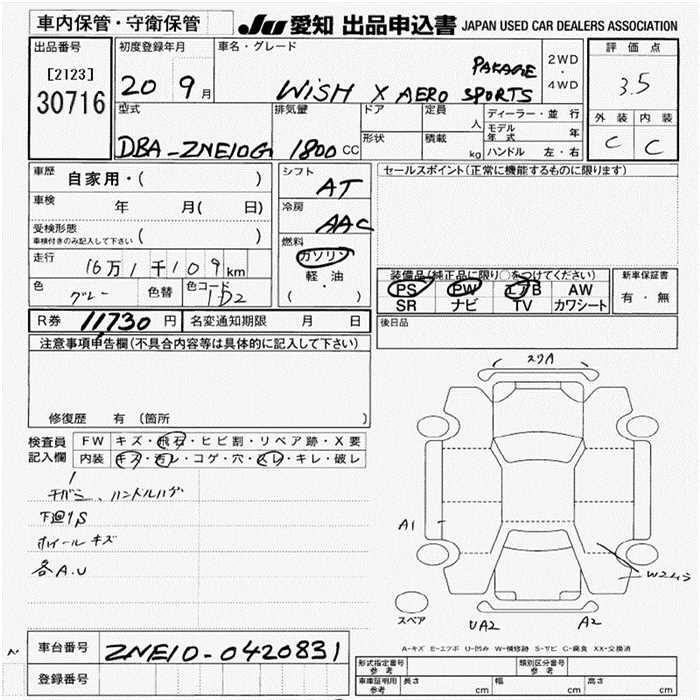 車内保管・守衛保管 JU 愛知 出品申込書 JAPAN USED CAR DEALERS ASSOCIATION
出品番号
[2123]
30716
初度登録年月
20 9月
車名・グレード
WiSH X AERO SPORTS PAKAGE
2WD
・
4WD
評価点
3.5
外装 内装
C C
型式
DBA-ZNE10G
排気量
1800 CC
ドア
形状
定員 人
積載 kg
ディーラー・並行
モデル年式 年
ハンドル 左・右
車歴 自家用・( )
車検 年 月( 日)
受検形態
車検付きのみ記入して下さい ( )
走行 16万1千109km
色 グレー 色替 色コード 1D2
シフト AT
冷房 AAC
燃料
ガソリン
・
軽油
・
( )
セールスポイント(正常に機能するものに限ります)
装備品(純正品に限り○をつけてください)
PS PW エアB AW
SR ナビ TV カワシート
新車保証書
有・無
後日品
R券 11,730円 名変通知期限 月 日
注意事項申告欄(不具合内容等は具体的に記入して下さい)
修復歴 有 (箇所 )
検査員記入欄
FW キズ・飛石・ヒビ割・リペア跡・X要
内装 キズ・汚レ・コゲ・穴・スレ・キレ・破レ
ハンドルハゲ
下回りS
ホイールキズ
各A.U
スリA
A1
W2ムラ
UA2
A2
スペア
A-キズ E-エクボ U-凹み W-補修跡 S-サビ C-腐食 XX-交換済
車台番号 ZNE10-0420831
登録番号
形式指定番号 参考
類別区分番号 参考
車庫証明用 参考 長さ cm 幅 cm 高さ cm